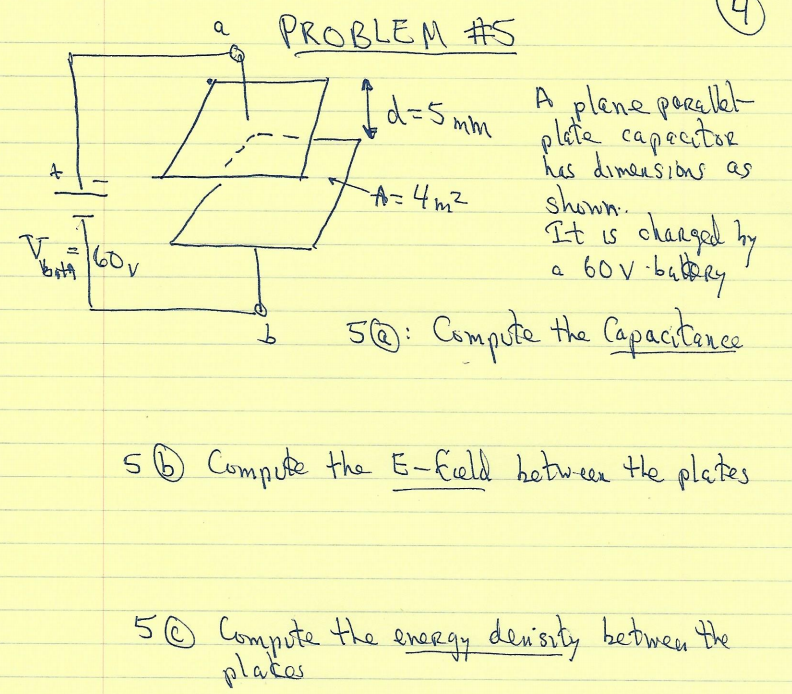 4
PROBLEM #5
a
d=5mm
A plane parallel-
plate capacitor
has dimensions as
shown.
It is charged by
a 60V battery
+ -
A=4m²
V = 60v
b
5ⓐ: Compute the Capacitance
5ⓑ Compute the E-field between the plates
5ⓒ Compute the energy density between the
plates